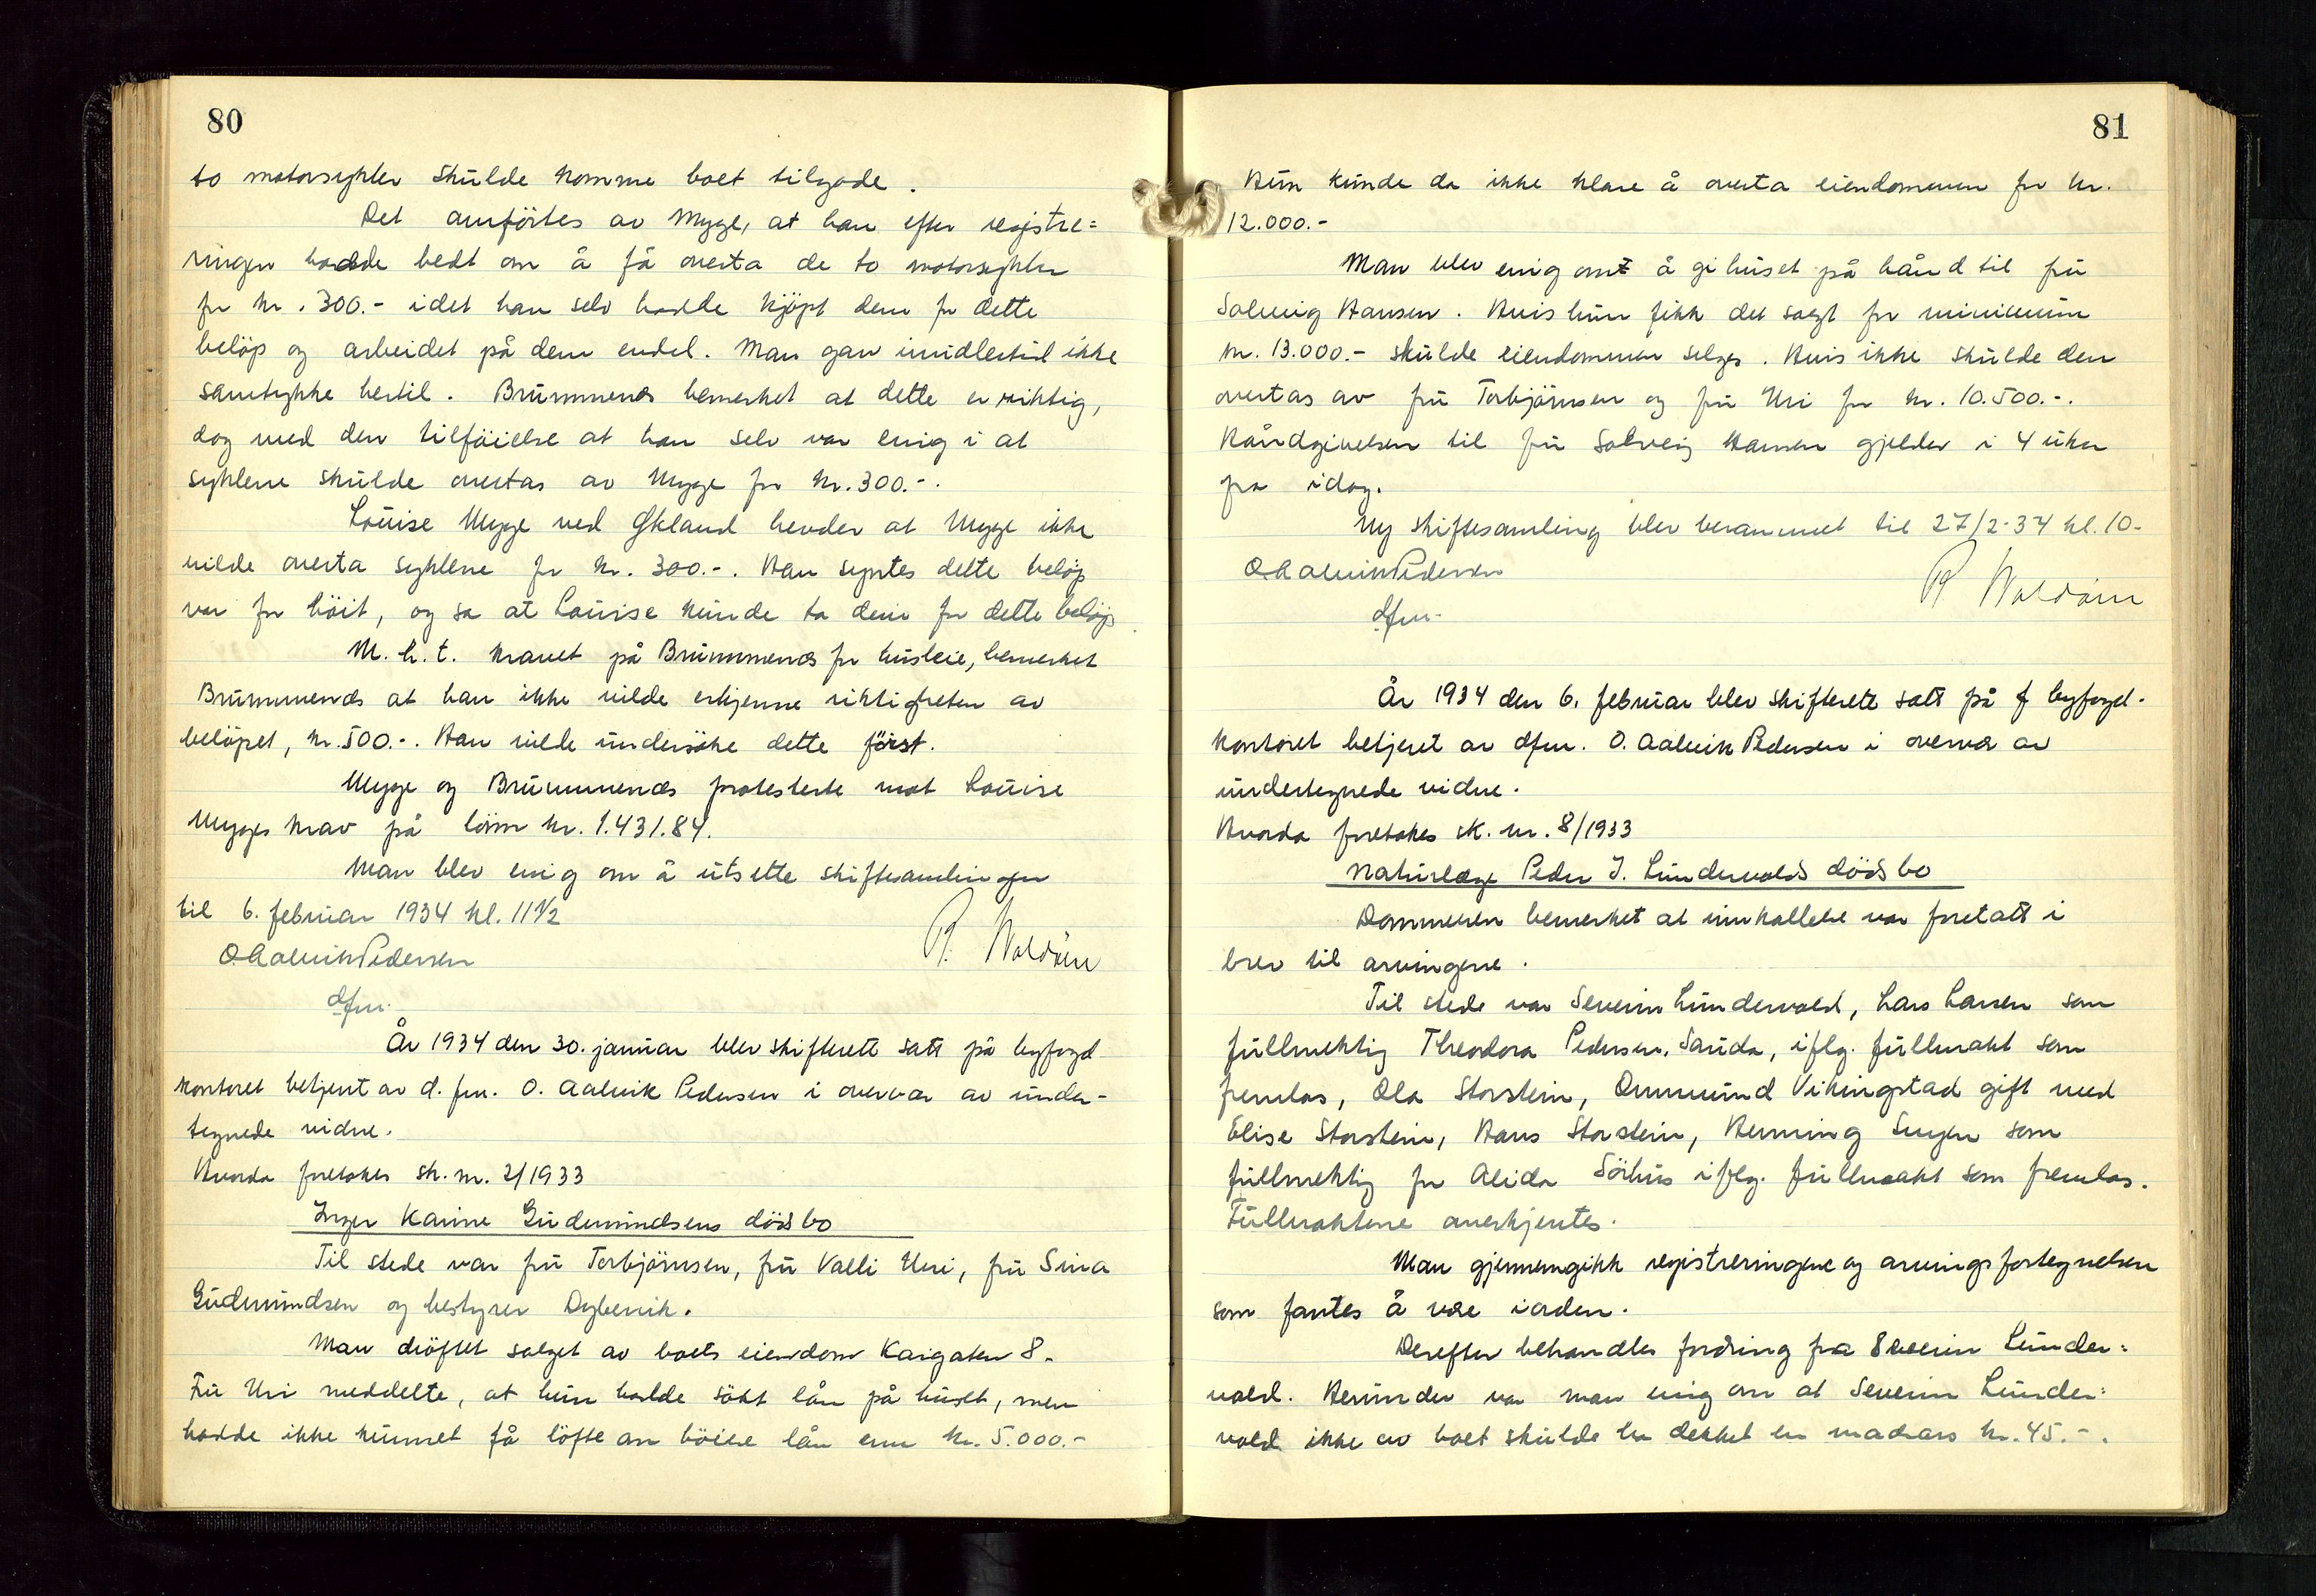 80
to motorsykler skulde komme boet tilgode.
Det anførtes av Mygge, at han efter registre=
ringen hadde bedt om å få overta de to motorsykler
for kr. 300.- idet han selv hadde kjöpt dem for dette
belöp og arbeidet på dem endel. Man gav imidlertid ikke
samtykke hertil. Brummenæs bemerket at dette er riktig,
dog med den tilföielse at han selv var enig i at
syklene skulde overtas av Mygge for kr. 300.-.
Louise Mygge ved Økland hevder at Mygge ikke
vilde overta syklene for kr. 300.-. Han syntes dette belöp
var for höit, og sa at Louise kunde ta dem for dette belöp
M.h.t. kravet på Brummenæs for husleie, bemerket
Brummenæs at han ikke vilde erkjenne riktigheten av
belöpet, kr. 500.-. Han vilde undersöke dette först.
Mygge og Brummenæs protesterte mot Louise
Mygges krav på lönn kr. 1.431.84.
Man blev enig om å utsette skiftesamlingen
til 6. februar 1934 kl. 11 1/2
O. Aalvik Pedersen
dfm.
År 1934 den 30. januar blev skifterett satt på byfogd
kontoret betjent av d. fm. O. Aalvik Pedersen i overvær av under-
tegnede vidne.
Hvorda foretokes sk. nr. 2/1933
Inger Karine Gudmundsens dödsbo
Til stede var fru Torbjörnsen, fru Valli Uri, fru Sina
Gudmundsen og bestyrer Dybevik.
Man dröftet salget av boets eiendom Kaigaten 8.
Fru Uri meddelte, at hun hadde sökt lån på huset, men
hadde ikke kunnet få löfte om höiere lån enn kr. 5.000.-
81
Hun kunde da ikke klare å overta eiendommen for kr.
12.000.-
Man blev enig om å gi huset på hånd til fru
Solveig Hansen. Hvis hun fikk det solgt for minimum
kr. 13.000.- skulde eiendommen selges. Hvis ikke skulde den
overtas av fru Torbjörnsen og fru Uri for kr. 10.500.-.
Håndgivelsen til fru Solveig Hansen gjelder i 4 uker
fra idag.
Ny skiftesamling blev berammet til 27/2-34 kl. 10-
O. Aalvik Pedersen
dfm.
År 1934 den 6. februar blev skifterett satt på byfogd-
kontoret betjent av dfm. O. Aalvik Pedersen i overvær av
undertegnede vidne.
Hvorda foretokes sk. nr. 8/1933
Naturlæge Peder J. Lundervolds dödsbo
Dommeren bemerket at innkallelse var foretatt i
brev til arvingene.
Til stede var Severin Lundervold, Lars Larsen som
fullmektig Theodora Pedersen, Sauda, iflg. fullmakt som
fremlas, Ola Storstein, Ommund Vikingstad gift med
Elise Storstein, Hans Storstein, Henning som
fullmektig for Alida Sörhus iflg. fullmakt som fremlas.
Fullmaktene anerkjentes.
Man gjennemgikk registreringene og arvingsfortegnelsen
som fantes å være iorden.
Derefter behandles fordring fra Severin Lunder=
vold. Herunder var man enig om at Severin Lunder=
vold ikke av boet skulde ha dekket en madrass kr. 45.-.